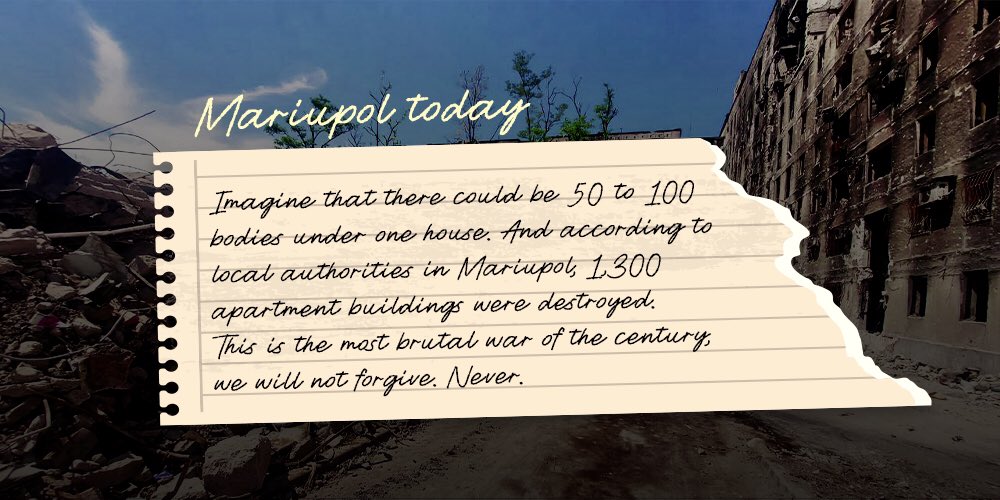 Mariupol today
Imagine that there could be 50 to 100
bodies under one house. And according to
local authorities in Mariupol, 1,300
apartment buildings were destroyed.
This is the most brutal war of the century,
we will not forgive. Never.